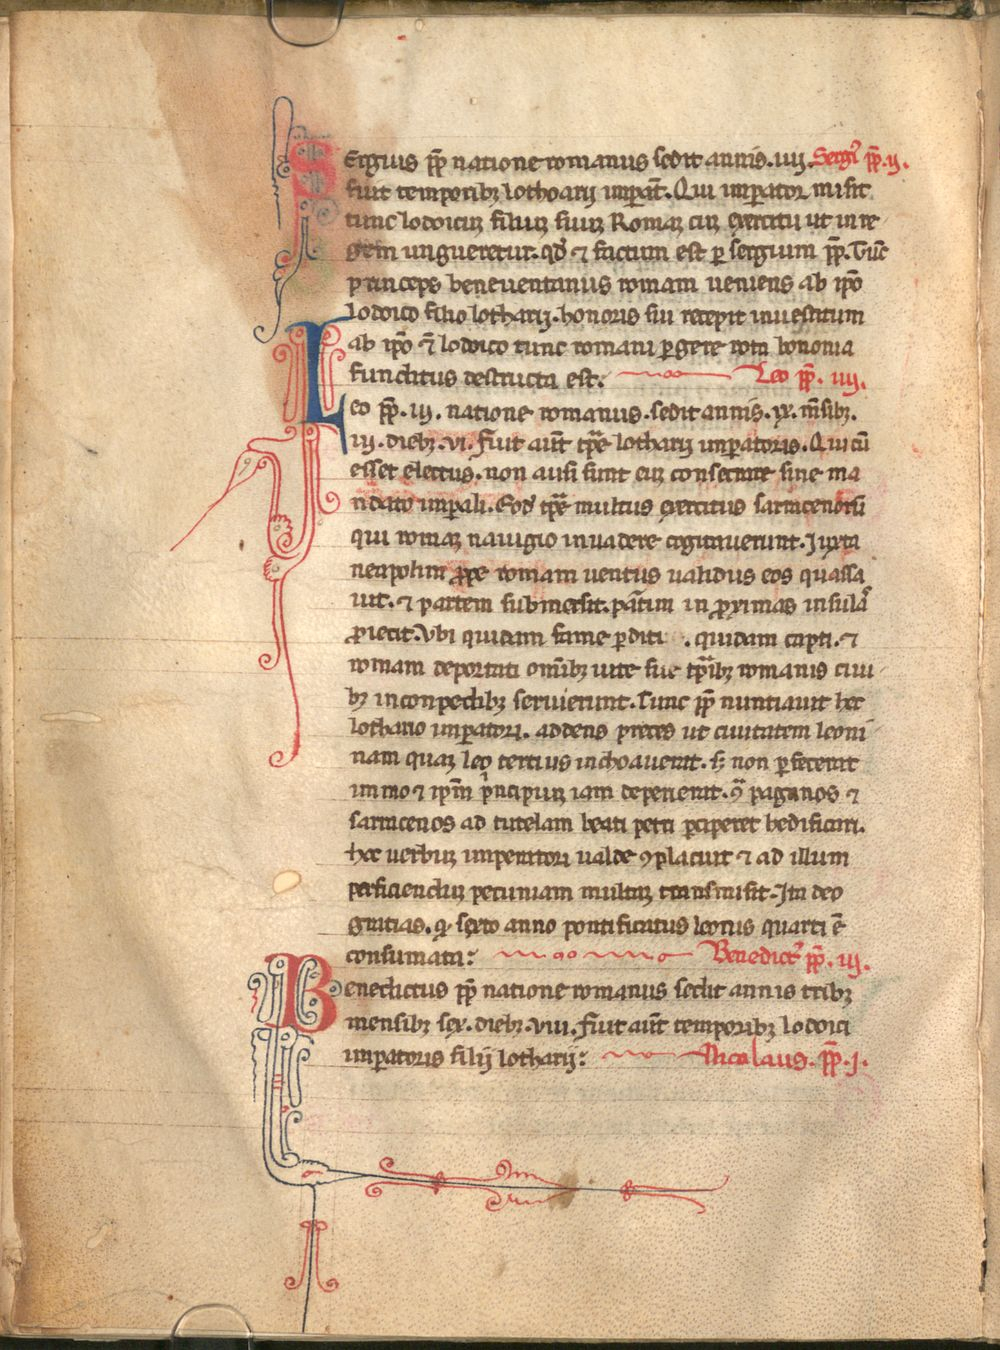 Sergius pp̄ natione romanus sedit annis .iiij. Sergi᷒ pp̄ .ij.
fuit temporibꝫ lotharij imperat̄. Qui imꝑator misit
tunc lodoicuꝫ filiuꝫ suuꝫ Romaꝫ cuꝫ exercitu ut in re
gem ungueretur. qd̓ ⁊ factum est ꝑ sergium pp̄. Tūc
princeps beneventanus romam ueniens ab ip̄o
lodoico filio lotharij. honoris sui recepit inuestitum
ab ip̄o lodoico tunc romani ꝑgere tota bononia
funditus destructa est: Leo pp̄. iiij.
Leo pp̄. iiij. natione romanus. sedit annis. mēsibꝫ.
iij. diebꝫ. vi. fuit aut̄ tp̄re lotharij imꝑatoris. Qui cū
esset electus. non ausi sunt euꝫ consecrare sine ma
ndato imꝑali. Eod̄ tp̄re multus exercitus sarracenorū
qui romaꝫ nauigio inuadere cogitauerunt. Iuxta
neapolim ꝓpe romam uentus ualidus eos quassa
uit. ⁊ partem submersit. partim in ꝓximas insulas
ꝓiecit. Vbi quidam fame ꝑditi . quidam capti. ⁊
romam deportati om̄ibꝫ uite sue tꝑibꝫ romanis ciui
bꝫ in conpedibꝫ seruierunt. Tunc pp̄ nuntiauit hec
lothario imꝑatori. addens preces ut ciuitatem leoni
nam quaꝫ leo tertius inchoauerat. sꝫ non ꝑfecerat
immo ⁊ ip̄m principiuꝫ iam deperierat. ꝯtra paganos ⁊
sarracenos ad tutelam beati petri ꝑciperet hedificari.
Hec uerbuꝫ imperatori ualde ꝯplacuit ⁊ ad illum
perficienduꝫ pecuniam multaꝫ transmisit. Ita deo
gratias. qꝫ sexto anno pontificatus leonis quarti ē
consumata: Benedict᷒ pp̄. iij.
Benedictus pp̄ natione romanus sedit annis tribꝫ
mensibꝫ sex. diebꝫ. viii. fuit aut̄ temporibꝫ lodoici
imꝑatoris filij lotharij: Nicolaus. pp̄. j.